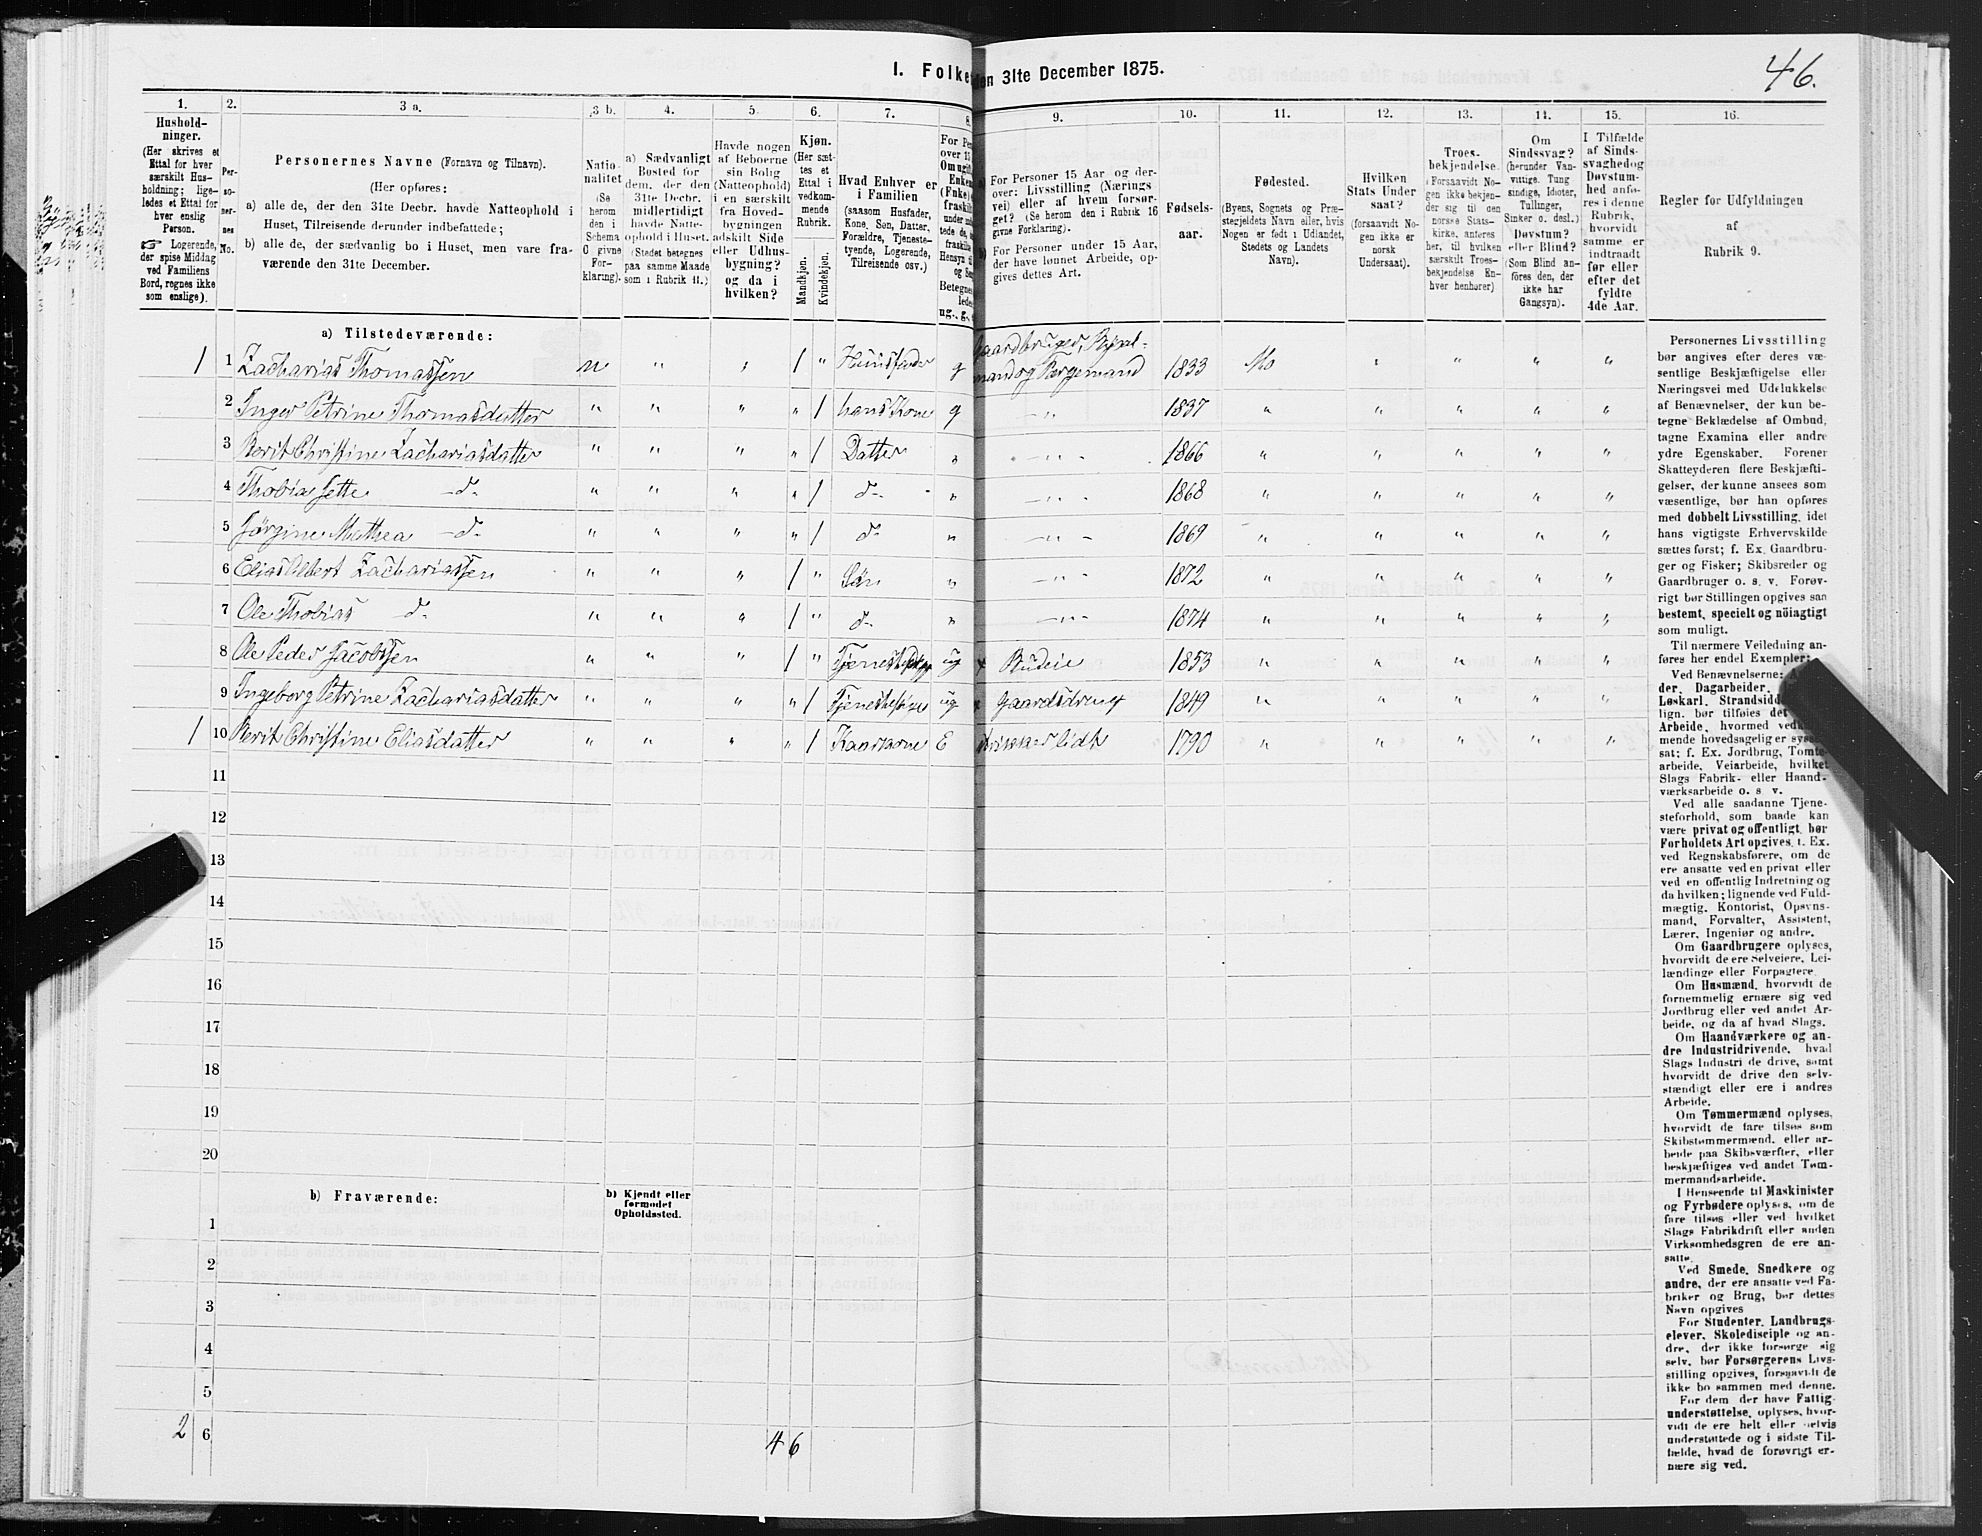 I. Folke
den 31te December 1875.
46.
1.
2.
3 a.
3 b.
4.
5.
6.
7.
8.
9.
10.
11.
12.
13.
14.
15.
16.
Hushold-
ninger.
(Her skrives et
Ettal for hver
særskilt Hus-
holdning; lige-
ledes et Ettal for
hver enslig
Person.
☞ Logerende,
der spise Middag
ved Familiens
Bord, regnes ikke
som enslige).
Per-
so-
ner-
nes
No.
Personernes Navne (Fornavn og Tilnavn).
(Her opføres:
a) alle de, der den 31te Decbr. havde Natteophold i
Huset, Tilreisende derunder indbefattede;
b) alle de, der sædvanlig bo i Huset, men vare fra-
værende den 31te December.
Natio-
nalitet
(Se
herom
den i
Schema
C givne
For-
klaring).
a) Sædvanligt
Bosted for
dem, der den
31te Decbr.
midlertidigt
havde Natte-
ophold i Huset.
(Stedet betegnes
paa samme Maade
som i Rubrik 11.)
Havde nogen
af Beboerne
sin Bolig
(Natteophold)
i en særskilt
fra Hoved-
bygningen
adskilt Side
eller Udhus-
bygning?
og da i
hvilken?
Kjøn.
(Her sæt-
tes et
Ettal i
vedkom-
mende
Rubrik.
Mandkjøn.
Kvindekjøn.
Hvad Enhver er
i Familien
(saasom Husfader,
Kone, Søn, Datter,
Forældre, Tjeneste-
tyende, Logerende,
Tilreisende osv.)
For Per
over 15
Om ugift,
Enkem
(Fnke)
fraskilt
ug., g.,
For Personer 15 Aar og der-
over: Livsstilling (Nærings
vei) eller af hvem forsør-
get? (Se herom den i Rubrik 16
givne Forklaring).
b) For Personer under 15 Aar,
der have lønnet Arbeide, op-
gives dettes Art.
Fødsels-
aar.
Fødested.
(Byens, Sognets og Præ-
stegjeldets Navn eller, hvis
Nogen er født i Udlandet,
Stedets og Landets
Navn).
Hvilken
Stats Under
saat?
(forsaavidt No-
gen ikke er
norsk
Undersaat).
Troes-
bekjendelse.
(Forsaavidt No-
gen ikke bekjen-
der sig til den
norske Stats-
kirke, anføres
her, til hvilken
særskilt Troes-
bekjendelse En-
hver henhører)
Om
Sindssvag?
(herunder Van-
vittige, Tung
sindige, Idioter,
Tullinger,
Sinker o. desl.)
Døvstum?
eller Blind?
(Som Blind an-
føres den, der
ikke har
Gangsyn).
I Tilfælde
af Sinds-
svaghed og
Døvstum-
hed anfø-
res i denne
Rubrik,
hvorvidt
samme er
indtraadt
før eller
efter det
fyldte
4de Aar.
Regler for Udfyldningen
af
Rubrik 9.
a) Tilstedeværende:
1 1 Zacharias Thomassen n " " 1 " Huusfader g Gaardbruger, Bygselmand og Færgemand 1833 Mo " " " "
2 Inger Petrine Thomasdatter " " " " 1 hans Kone g " 1837 " " " " "
3 Berit Christine Zachariasdatter " " " " 1 Datter " " 1866 " " " " "
4 Thobia Jette d- " " " " 1 d- " " 1868 " " " " "
5 Jørgine Mathea d- " " " " 1 d- " " 1869 " " " " "
6 Elias Albert Zachariassen " " " 1 " Søn " " 1872 " " " " "
7 Ole Thobias d- " " " 1 " d- " " 1874 " " " " "
8 Ole Peder Jacobssen " " " 1 " ug x Budeie 1853 " " " " "
9 Ingeborg Petrine Zachariasdatter " " " " 1 ug x Gaardsdreng 1849 " " " " "
1 10 Berit Christine Eliasdatter " " " " 1 Kaarkone E 1790 " " " " "
11
12
13
14
15
16
17
18
19
20
b) Fraværende:
b) Kjendt eller
formodet
Opholdssted.
1
2
3
4
5
2 6 4 6
Personernes Livsstilling
bør angives efter deres væ-
sentlige Beskjæftigelse eller
Næringsvei med Udelukkelse
af Benævnelser, der kun be-
tegne Beklædelse af Ombud,
tagne Examina eller andre
ydre Egenskaber. Forener
Skatteyderen flere Beskjæfti-
gelser, der kunne ansees som
væsentlige, bør han opføres
med dobbelt Livsstilling, idet
hans vigtigste Erhvervskilde
sættes først; f. Ex. Gaardbru-
ger og Fisker; Skibsreder og
Gaardbruger o. s. v. Forøv-
rigt bør Stillingen opgives saa
bestemt, specielt og nöiagtigt
som muligt.
Til nærmere Veiledning an-
føres her endel Exempler:
Ved Benævnelserne:
der, Dagarbeider,
Løskarl, Strandsidd
lign. bør tilføies det
Arbeide, hvormed vedk
mende hovedsagelig er syssel
sat; f. Ex. Jordbrug, Tomte-
arbeide, Veiarbeide, hvilket
Slags Fabrik- eller Haand-
værksarbeide o. s. v.
Ved alle saadanne Tjene-
steforhold, som baade kan
være privat og offentligt, bør
Forholdets Art opgives, t. Ex.
ved Regnskabsførere, om de
ere ansatte ved en privat eller
ved en offentlig Indretning og
da hvilken; lignende ved Fuld-
mægtig, Kontorist, Opsyns-
mand, Forvalter, Assistent,
Lærer, Ingeniør og andre.
Om Gaardbrugere oplyses,
hvorvidt de ere Selveiere, Lei-
lændinge eller Forpagtere.
Om Husmænd, hvorvidt de
fornemmelig ernære sig ved
Jordbrug eller ved andet Ar-
beide, og da af hvad Slags.
Om Haandværkere og an-
dre Industridrivende, hvad
Slags Industri de drive, samt
hvorvidt de drive den selv-
stændigt eller ere i andres
Arbeide.
Om Tømmermænd oplyses,
hvorvidt de fare tilsøs som
Skibstømmermænd, eller ar-
beide paa Skibsværfter, eller
beskjæftiges ved andet Tøm-
mermandsarbeide.
I Henseende til Maskinister
og Fyrbødere oplyses, om de
fare tilsøs eller ved hvilket
Slags Fabrikdrift eller anden
Virksomhedsgren de ere an-
satte.
Ved Smede, Snedkere og
andre, der ere ansatte ved Fa-
briker og Brug, bør dettes
Navn opgives
For Studenter, Landbrugs-
elever, Skoledisciple og an-
dre, der ikke forsørge sig
selv, bør Forsørgerens Livs-
stilling opgives, forsaavidt de
ikke bo sammen med denne.
For dem der have Fattig-
understøttelse, oplyses, hvor-
vidt de ere helt eller delvis
understøttede og i sidste Til-
fælde, hvad de forøvrigt er-
nære sig ved.